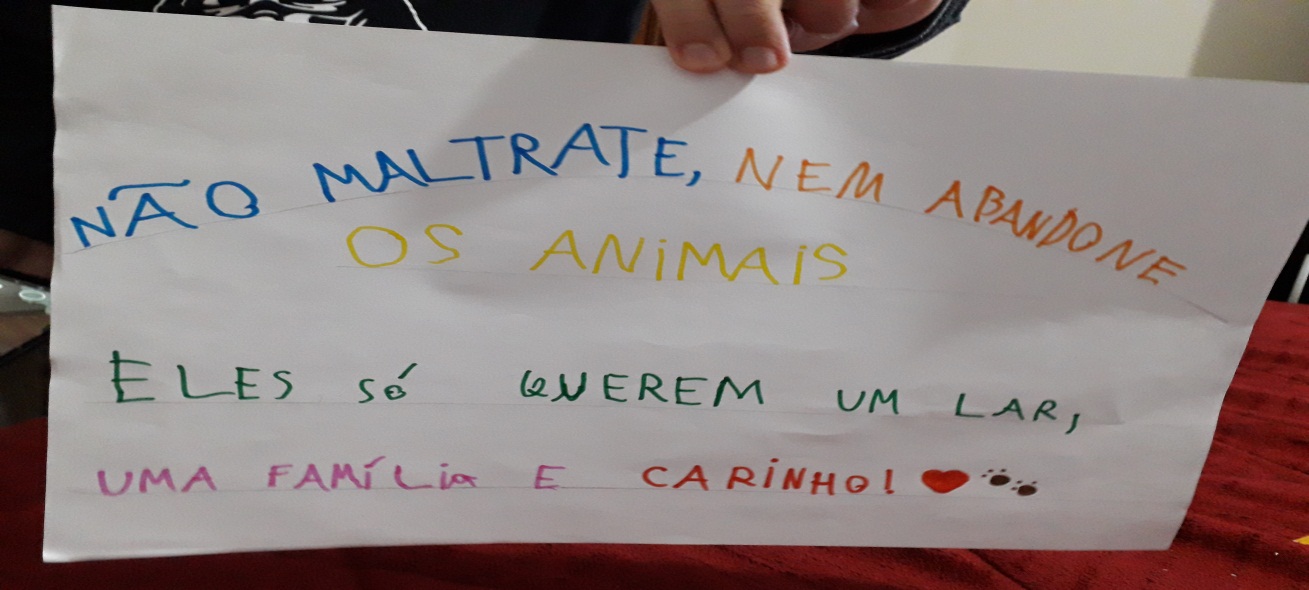 NÃO MALTRATE, NEM ABANDONE
OS ANIMAIS
ELES SÓ QUEREM UM LAR,
UMA FAMÍLIA E CARINHO! ❤️🐾